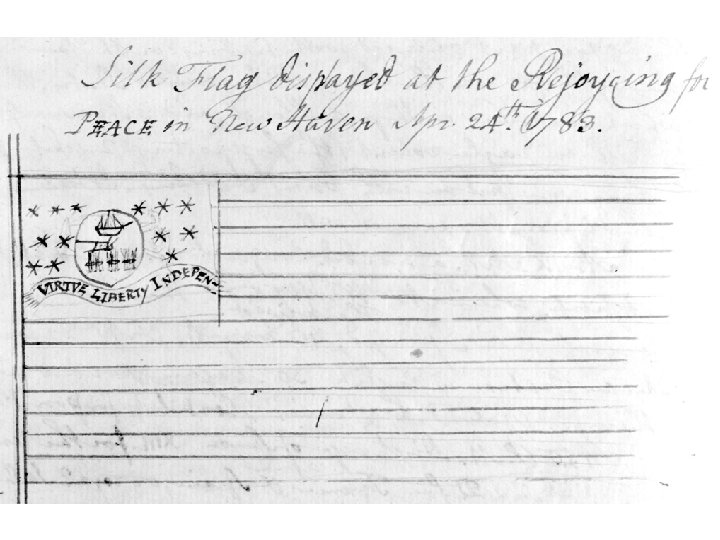 Silk Flag displayed at the Rejoycing for
PEACE in New Haven Apr. 24th. 1783.
VIRTVE LIBERTY INDEPEN~